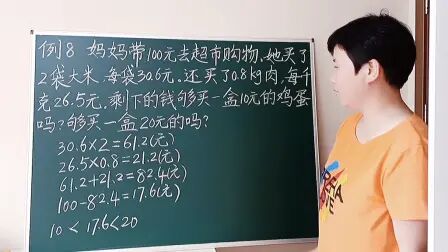 例8 妈妈带100元去超市购物.她买了
2袋大米,每袋30.6元.还买了0.8kg肉,每千
克26.5元,剩下的钱够买一盒10元的鸡蛋
吗?够买一盒20元的吗?
30.6×2=61.2(元)
26.5×0.8=21.2(元)
61.2+21.2=82.4(元)
100-82.4=17.6(元)
10<17.6<20